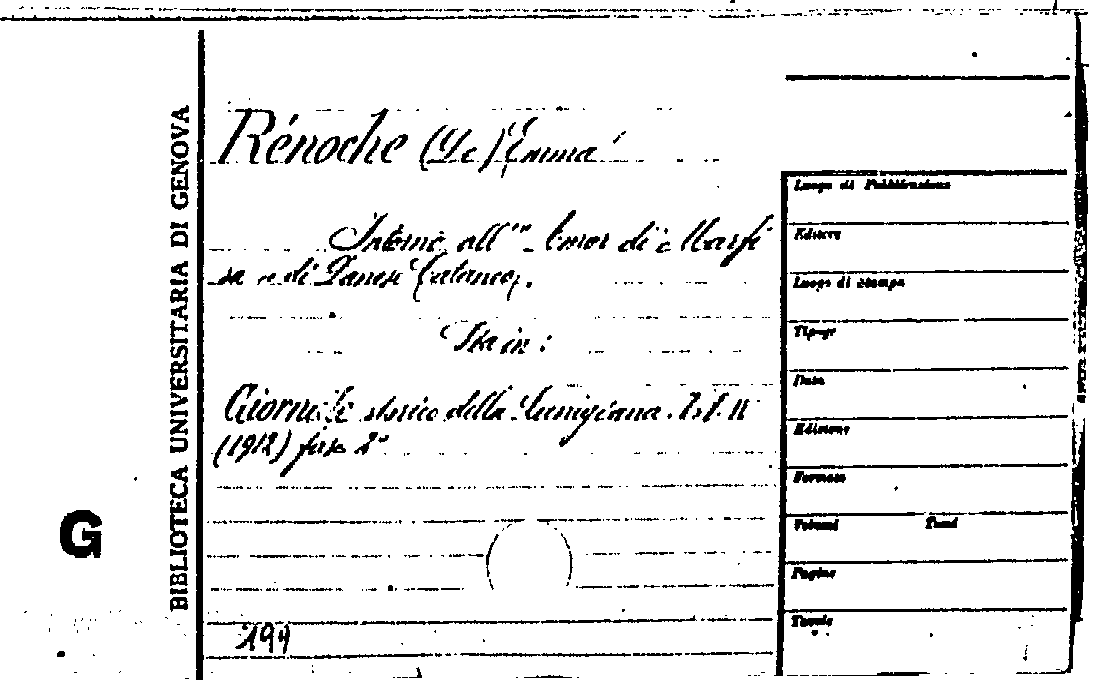 BIBLIOTECA UNIVERSITARIA DI GENOVA
G
Rénoche (Le) Emma
Intorno all'" Amor di Marfi
sa " di Danese Cataneo,.
Sta in:
Giornale storico della Lunigiana.
(1912) fasc 2°
199
Luogo di Pubblicazione
Editore
Luogo di stampa
Tipogr
Data
Edizione
Formato
Volumi
Pagine
Tavole